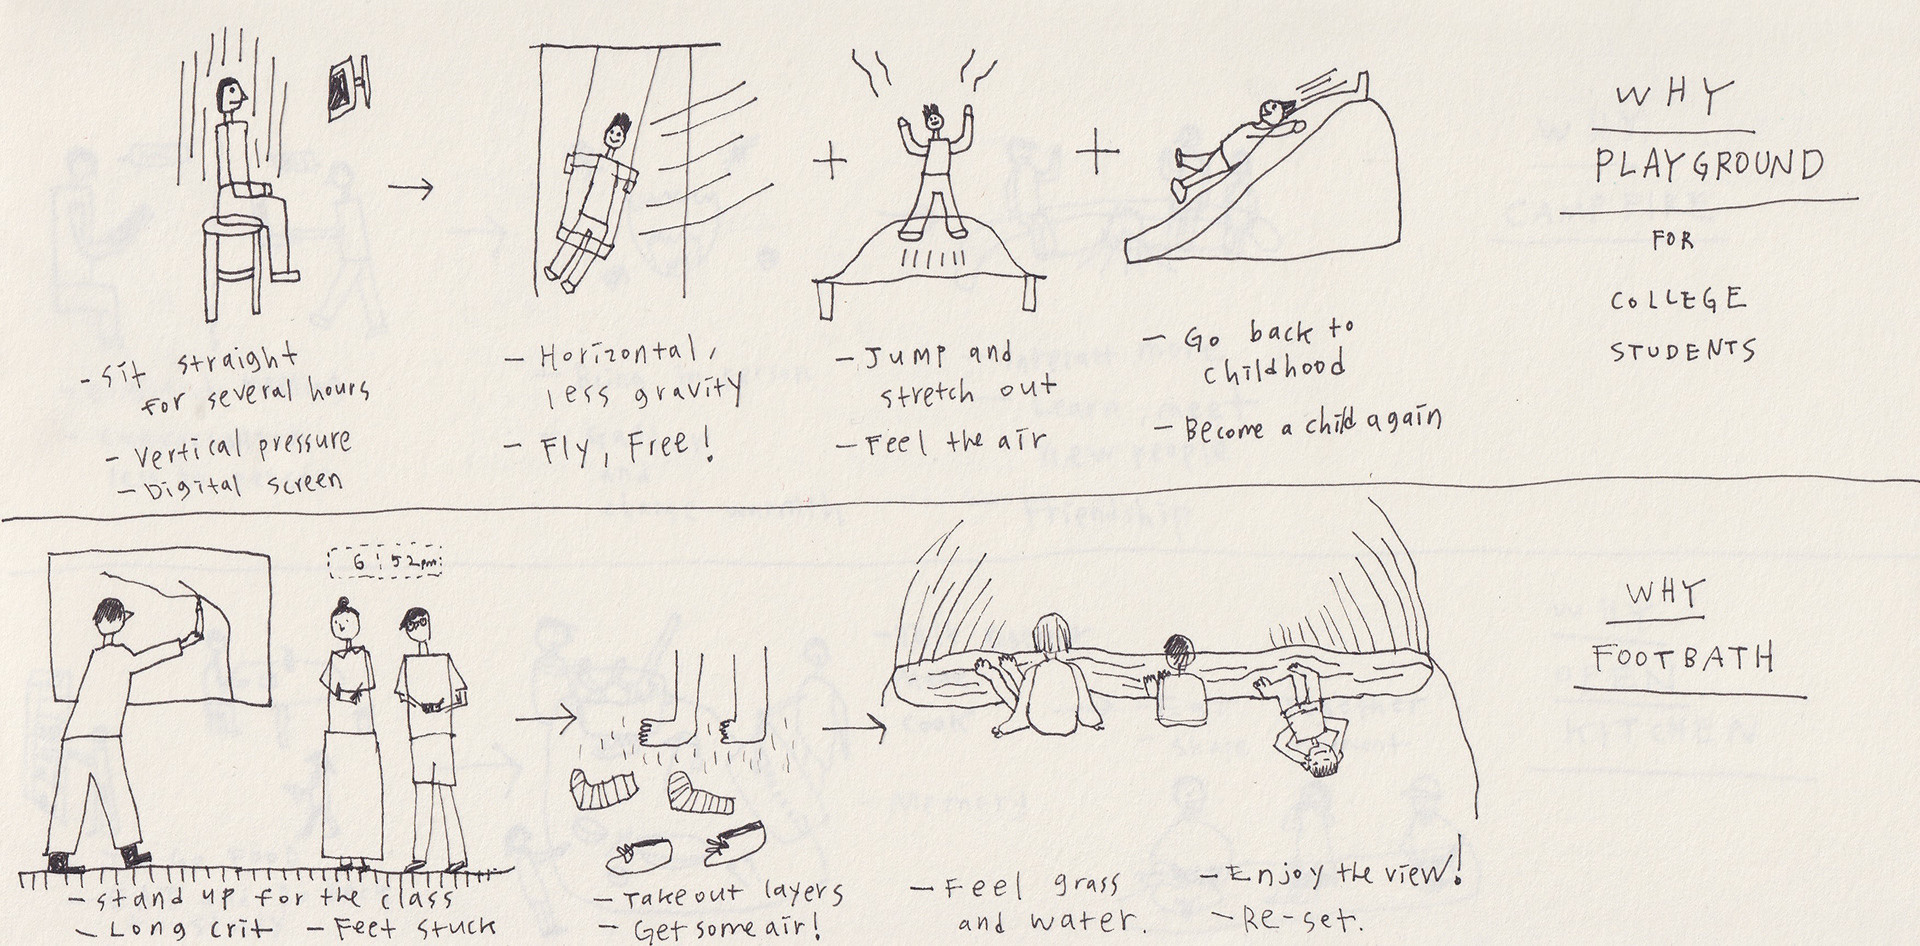 WHY
PLAYGROUND
FOR
COLLEGE
STUDENTS
- Sit straight
for several hours
- Vertical pressure
- Digital screen
- Horizontal,
less gravity
- Fly, Free!
- Jump and
stretch out
- Feel the air
- Go back to
childhood
- Become a child again
6:52pm
WHY
FOOTBATH
- stand up for the class
- Long crit - Feet stuck
- Take out layers
- Get some air!
- Feel grass
and water.
- Enjoy the view!
- Re-set.